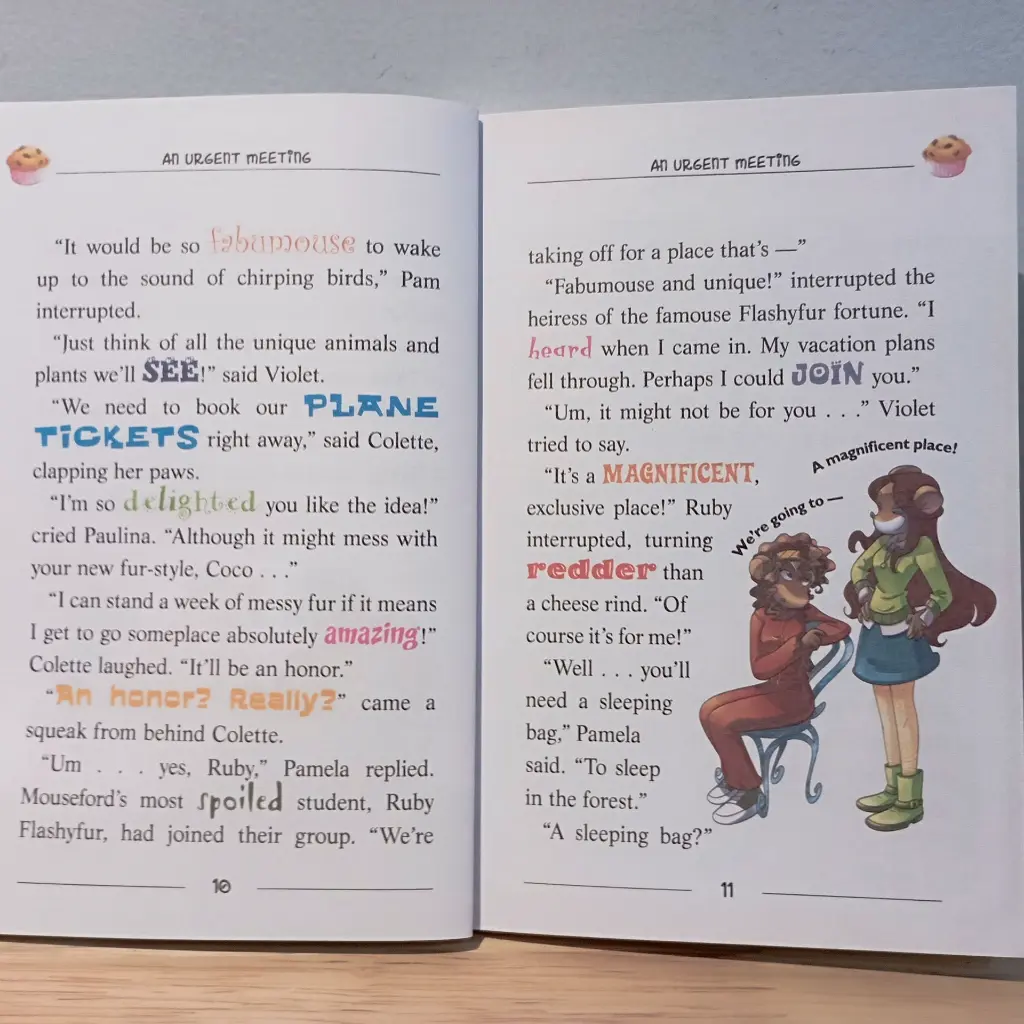 AN URGENT MEETING
“It would be so fabumouse to wake
up to the sound of chirping birds,” Pam
interrupted.
“Just think of all the unique animals and
plants we’ll SEE!” said Violet.
“We need to book our PLANE
TICKETS right away,” said Colette,
clapping her paws.
“I’m so delighted you like the idea!”
cried Paulina. “Although it might mess with
your new fur-style, Coco . . .”
“I can stand a week of messy fur if it means
I get to go someplace absolutely amazing!”
Colette laughed. “It’ll be an honor.”
“An honor? Really?” came a
squeak from behind Colette.
“Um . . . yes, Ruby,” Pamela replied.
Mouseford’s most spoiled student, Ruby
Flashyfur, had joined their group. “We’re
10
AN URGENT MEETING
taking off for a place that’s —”
“Fabumouse and unique!” interrupted the
heiress of the famouse Flashyfur fortune. “I
heard when I came in. My vacation plans
fell through. Perhaps I could JOIN you.”
“Um, it might not be for you . . .” Violet
tried to say.
“It’s a MAGNIFICENT,
exclusive place!” Ruby
interrupted, turning
redder than
a cheese rind. “Of
course it’s for me!”
“Well . . . you’ll
need a sleeping
bag,” Pamela
said. “To sleep
in the forest.”
“A sleeping bag?”
We’re going to —
A magnificent place!
11